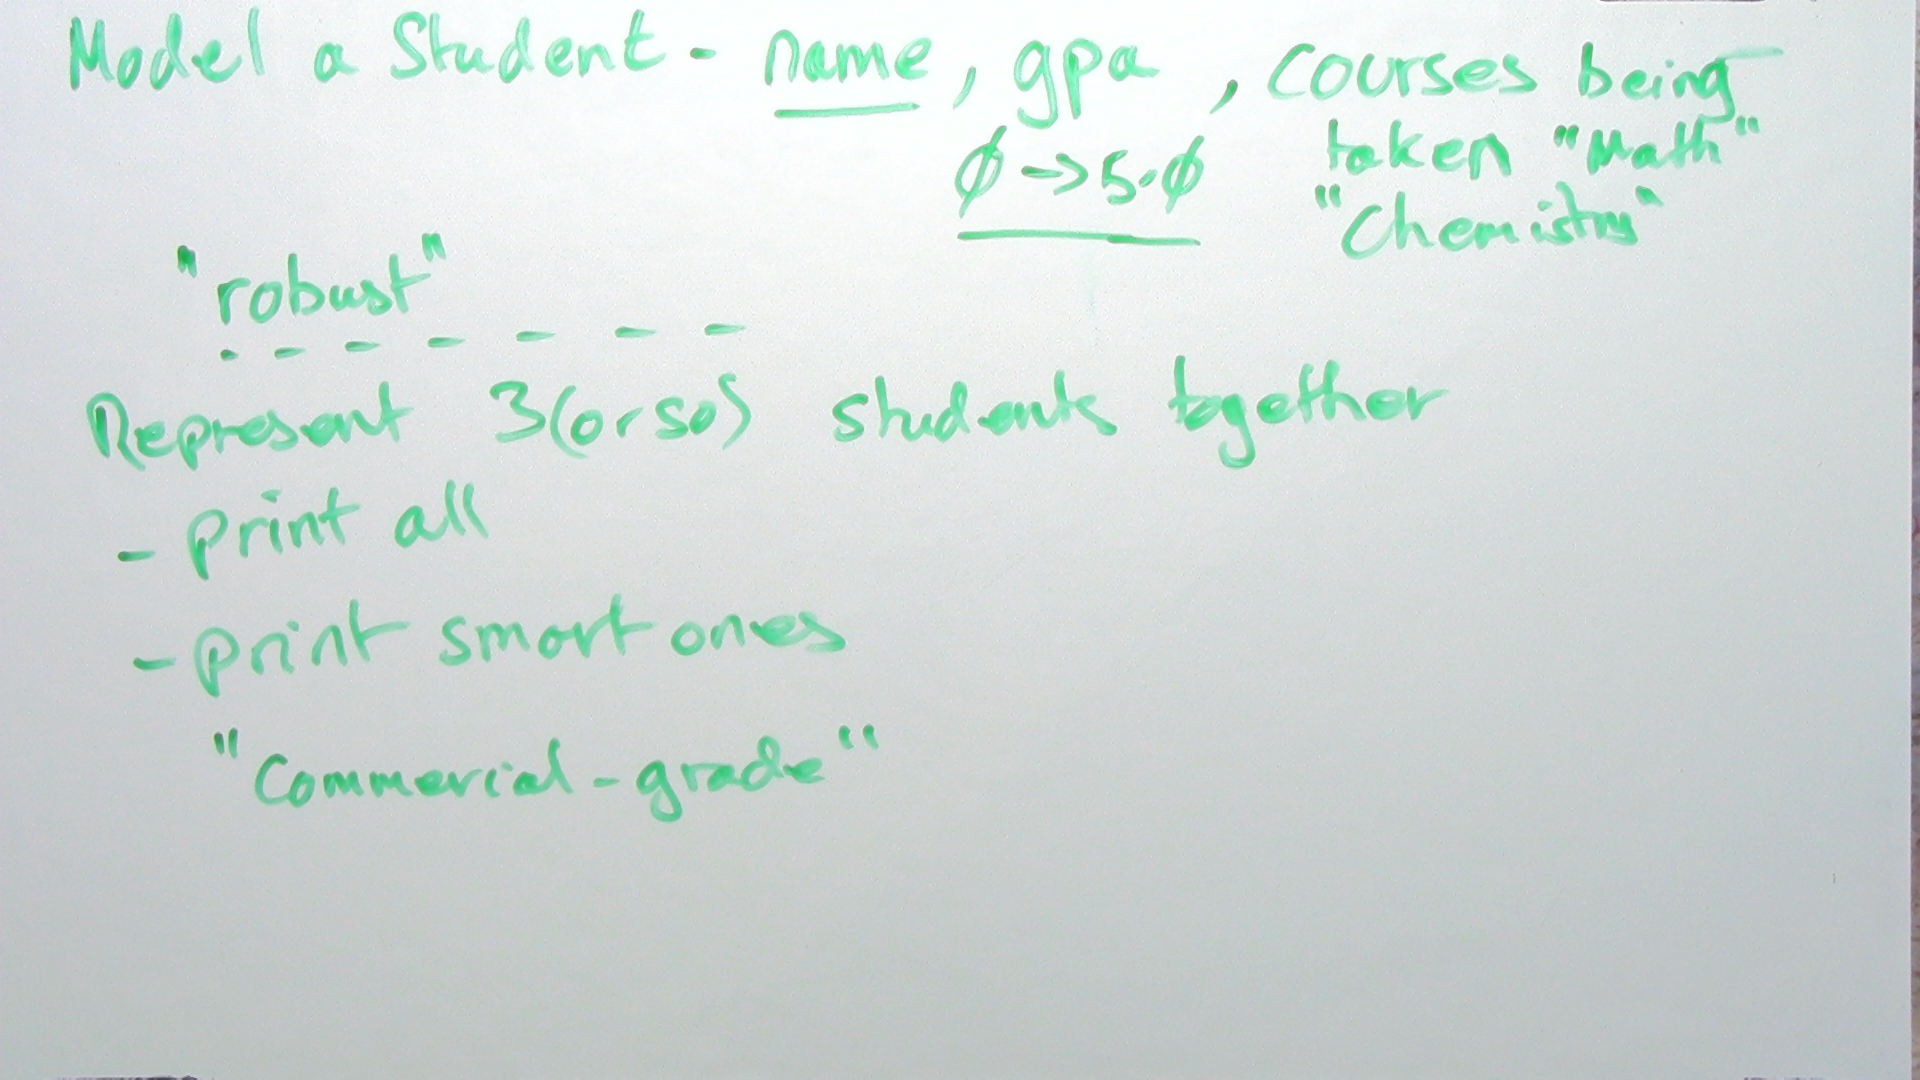 Model a Student - name, gpa, courses being
taken "Math"
Ø -> 5.Ø
"Chemistry"
"robust"
Represent 3(or so) students together
- print all
- print smart ones
"Commercial-grade"